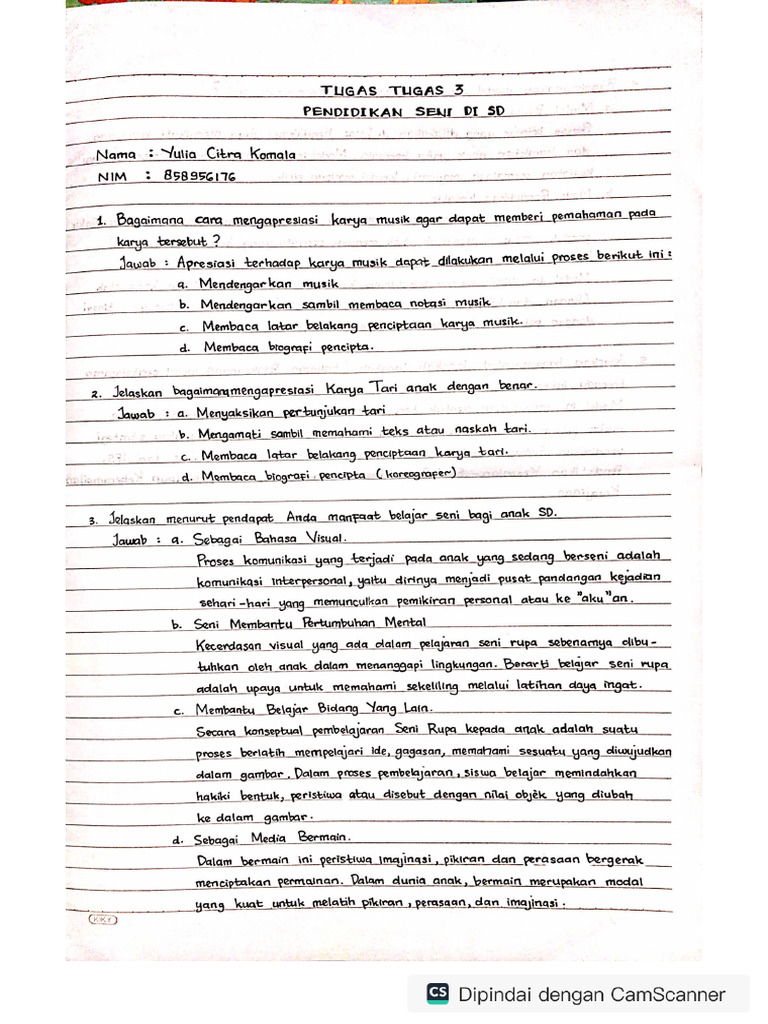 TUGAS TUGAS 3
PENDIDIKAN SENI DI SD
Nama : Yulia Citra Komala
NIM : 858956176
1. Bagaimana cara mengapresiasi karya musik agar dapat memberi pemahaman pada
karya tersebut ?
Jawab : Apresiasi terhadap karya musik dapat dilakukan melalui proses berikut ini :
a. Mendengarkan musik
b. Mendengarkan sambil membaca notasi musik
c. Membaca latar belakang penciptaan karya musik.
d. Membaca biografi pencipta.
2. Jelaskan bagaimana mengapresiasi Karya Tari anak dengan benar.
Jawab : a. Menyaksikan pertunjukan tari
b. Mengamati sambil memahami teks atau naskah tari.
c. Membaca latar belakang penciptaan karya tari.
d. Membaca biografi pencipta (koreografer)
3. Jelaskan menurut pendapat Anda manfaat belajar seni bagi anak SD.
Jawab : a. Sebagai Bahasa Visual.
Proses komunikasi yang terjadi pada anak yang sedang berseni adalah
komunikasi interpersonal, yaitu dirinya menjadi pusat pandangan kejadian
sehari-hari yang memunculkan pemikiran personal atau ke "aku"an.
b. Seni Membantu Pertumbuhan Mental
Kecerdasan visual yang ada dalam pelajaran seni rupa sebenarnya dibu-
tuhkan oleh anak dalam menanggapi lingkungan. Berarti belajar seni rupa
adalah upaya untuk memahami sekeliling melalui latihan daya ingat.
c. Membantu Belajar Bidang Yang Lain.
Secara konseptual pembelajaran Seni Rupa kepada anak adalah suatu
proses berlatih mempelajari ide, gagasan, memahami sesuatu yang diwujudkan
dalam gambar. Dalam proses pembelajaran, siswa belajar memindahkan
hakiki bentuk, peristiwa atau disebut dengan nilai objek yang diubah
ke dalam gambar.
d. Sebagai Media Bermain.
Dalam bermain ini peristiwa imajinasi, pikiran dan perasaan bergerak
menciptakan permainan. Dalam dunia anak, bermain merupakan modal
yang kuat untuk melatih pikiran, perasaan, dan imajinasi.
KIKY
CS Dipindai dengan CamScanner